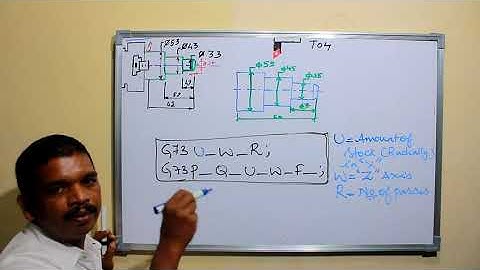 Ø53
Ø43
Ø33
T04
Φ55
Φ45
Φ35
62
G73 U_ W_ R_;
G73 P_ Q_ U_ W_ F_;
U = Amount of
Stock (Radially)
W = "Z" axis
R - No. of passes